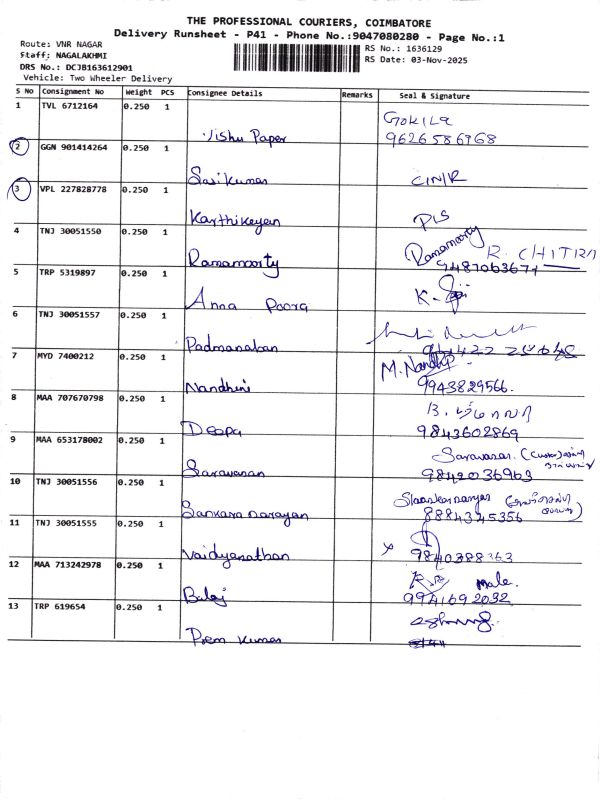 THE PROFESSIONAL COURIERS, COIMBATORE
Delivery Runsheet - P41 - Phone No.:9047080280 - Page No.:1
Route: VNR NAGAR
Staff: NAGALAKHMI
DRS No.: DCJB163612901
Vehicle: Two Wheeler Delivery
RS No.: 1636129
RS Date: 03-Nov-2025
S No Consignment No Weight PCS Consignee Details Remarks Seal & Signature
1 TVL 6712164 0.250 1 Vishu Paper GOKILA
9626586968
2 GGN 901414264 0.250 1 Sasikumar
3 VPL 227828778 0.250 1 Karthikeyan
4 TNJ 30051550 0.250 1 Ramamoorty Ramamoorty R. CHITRA
9487063671
5 TRP 5319897 0.250 1 Anna Poora
6 TNJ 30051557 0.250 1 Padmanaban
7 MYD 7400212 0.250 1 Nandhini M. Nandhi
9943829566.
8 MAA 707670798 0.250 1 Deepa
9843602869
9 MAA 653178002 0.250 1 Saravanan Saravanan.
9842036963
10 TNJ 30051556 0.250 1 Sankara narayan
8884345356
11 TNJ 30051555 0.250 1 Vaidyanathan
9840388363
12 MAA 713242978 0.250 1 Balaji Male.
9941692032
13 TRP 619654 0.250 1 Prem kumar